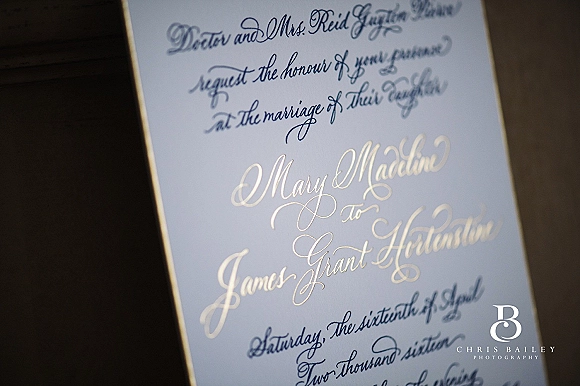 Doctor and Mrs. Reid Guyton Pierce
request the honour of your presence
at the marriage of their daughter
Mary Madeline
to
James Grant Hortenstine
Saturday, the sixteenth of April
Two thousand sixteen
evening
B
CHRIS BAILEY
PHOTOGRAPHY